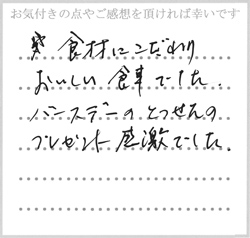 お気付きの点やご感想を頂ければ幸いです
食材にこだわり
おいしい食事でした。
バースデーのとつせんの
プレゼント感激でした。